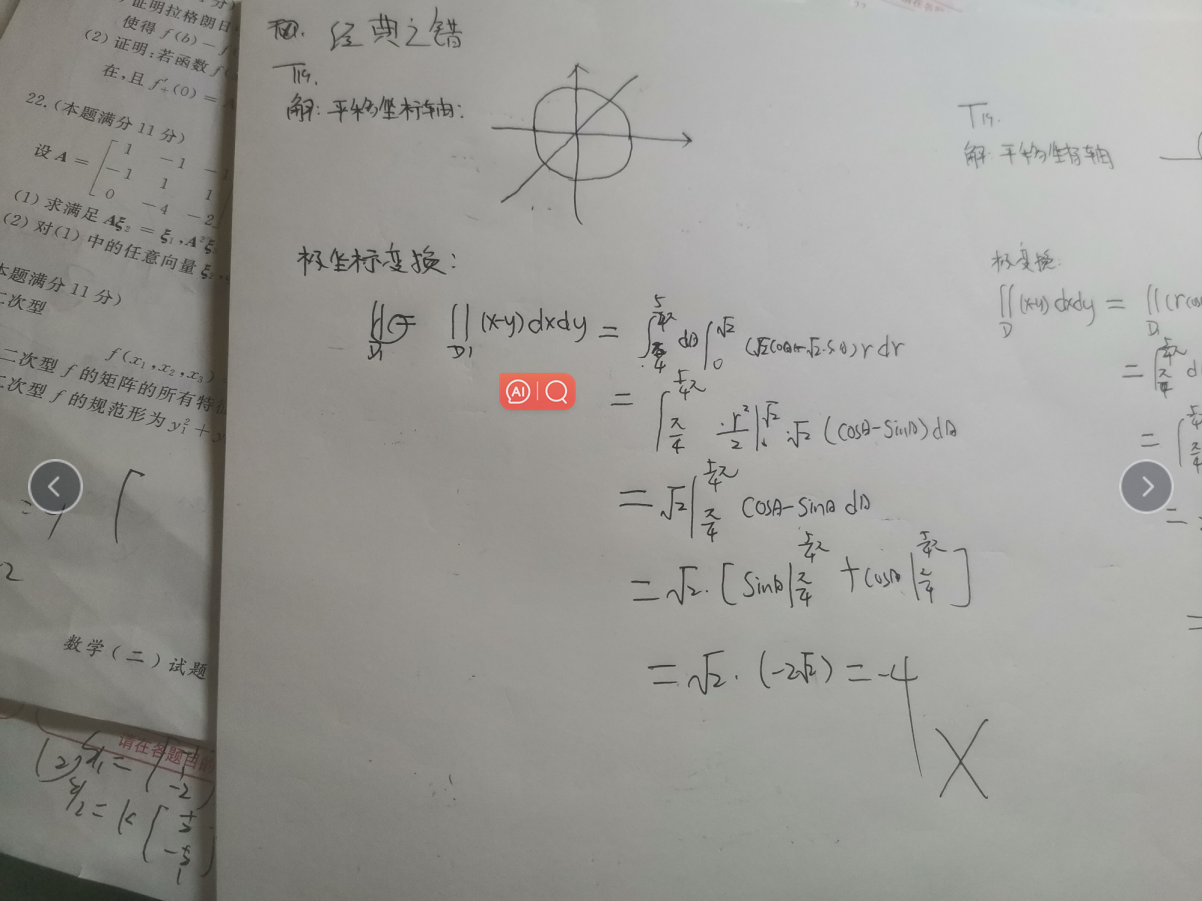 证明拉格朗日
使得 f(b)-f
(2) 证明:若函数 f
在,且 f'₊(0)=A
22.(本题满分11分)
设 A = [1 -1 -1
-1 1 1
0 -4 -2
(1) 求满足 Aξ₂=ξ₁,A²ξ
(2) 对(1)中的任意向量 ξ
本题满分11分)
二次型
f(x₁,x₂,x₃)
二次型 f 的矩阵的所有特征
二次型 f 的规范形为 y₁²+y
数学(二)试题
请在各题目的
经典之错
T19.
解:平移坐标轴:
极坐标变换:
∬_{D1} (x-y)dxdy = ∫_{π/4}^{5/4π} dθ ∫_0^{√2} (√2cosθ-√2·sinθ) r dr
= ∫_{π/4}^{5/4π} r²/2 |_0^{√2} · √2 (cosθ-sinθ) dθ
= √2 ∫_{π/4}^{5/4π} cosθ-sinθ dθ
= √2·[sinθ|_{π/4}^{5/4π} + cosθ|_{π/4}^{5/4π}]
= √2·(-2√2) = -4
X
AI
T19.
解:平移坐标轴
极变换:
∬_D (x-y)dxdy = ∬_{D1} (rcos
= ∫_{π/4}^{5/4π} d